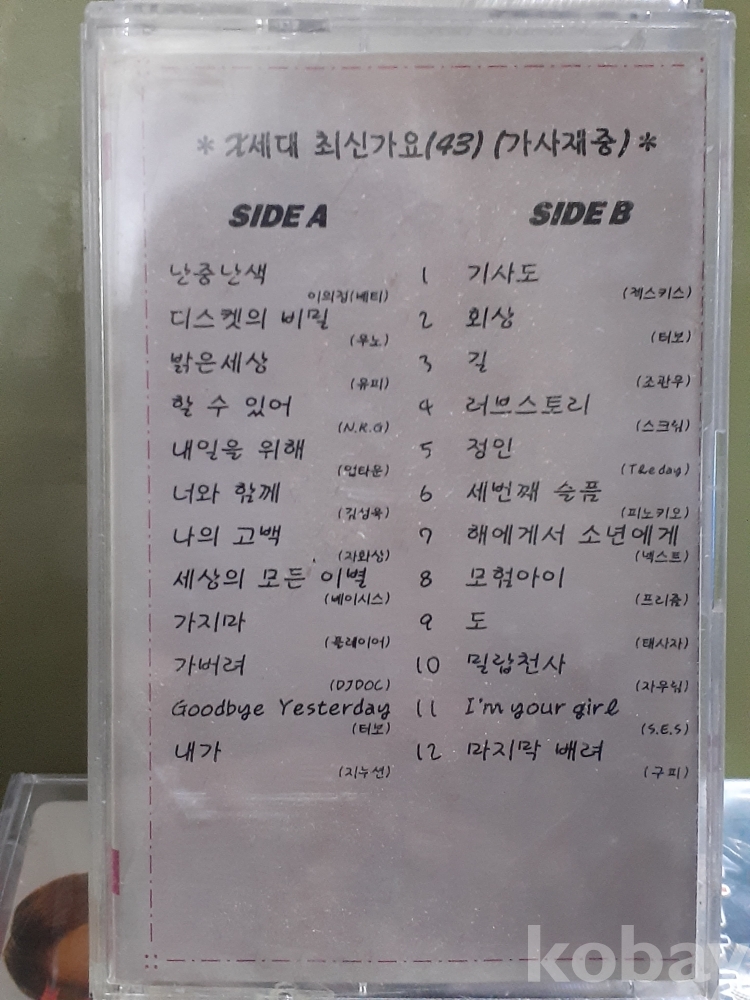 * X세대 최신가요(43) (가사재중) *
SIDE A SIDE B
난중난색 1 기사도
이의정(베티) (젝스키스)
디스켓의 비밀 2 회상
(우노) (터보)
밝은세상 3 길
(유피) (조관우)
할 수 있어 4 러브스토리
(N.R.G) (스크웜)
내일을 위해 5 정인
(업타운) (The day)
너와 함께 6 세번째 슬픔
(김성욱) (피노키오)
나의 고백 7 해에게서 소년에게
(자화상) (넥스트)
세상의 모든 이별 8 모험아이
(베이시스) (프리즘)
가지마 9 도
(플레이어) (태사자)
가버려 10 밀랍천사
(DJDOC) (자우림)
Goodbye Yesterday 11 I'm your girl
(터보) (S.E.S)
내가 12 마지막 배려
(지누션) (구피)
kobay